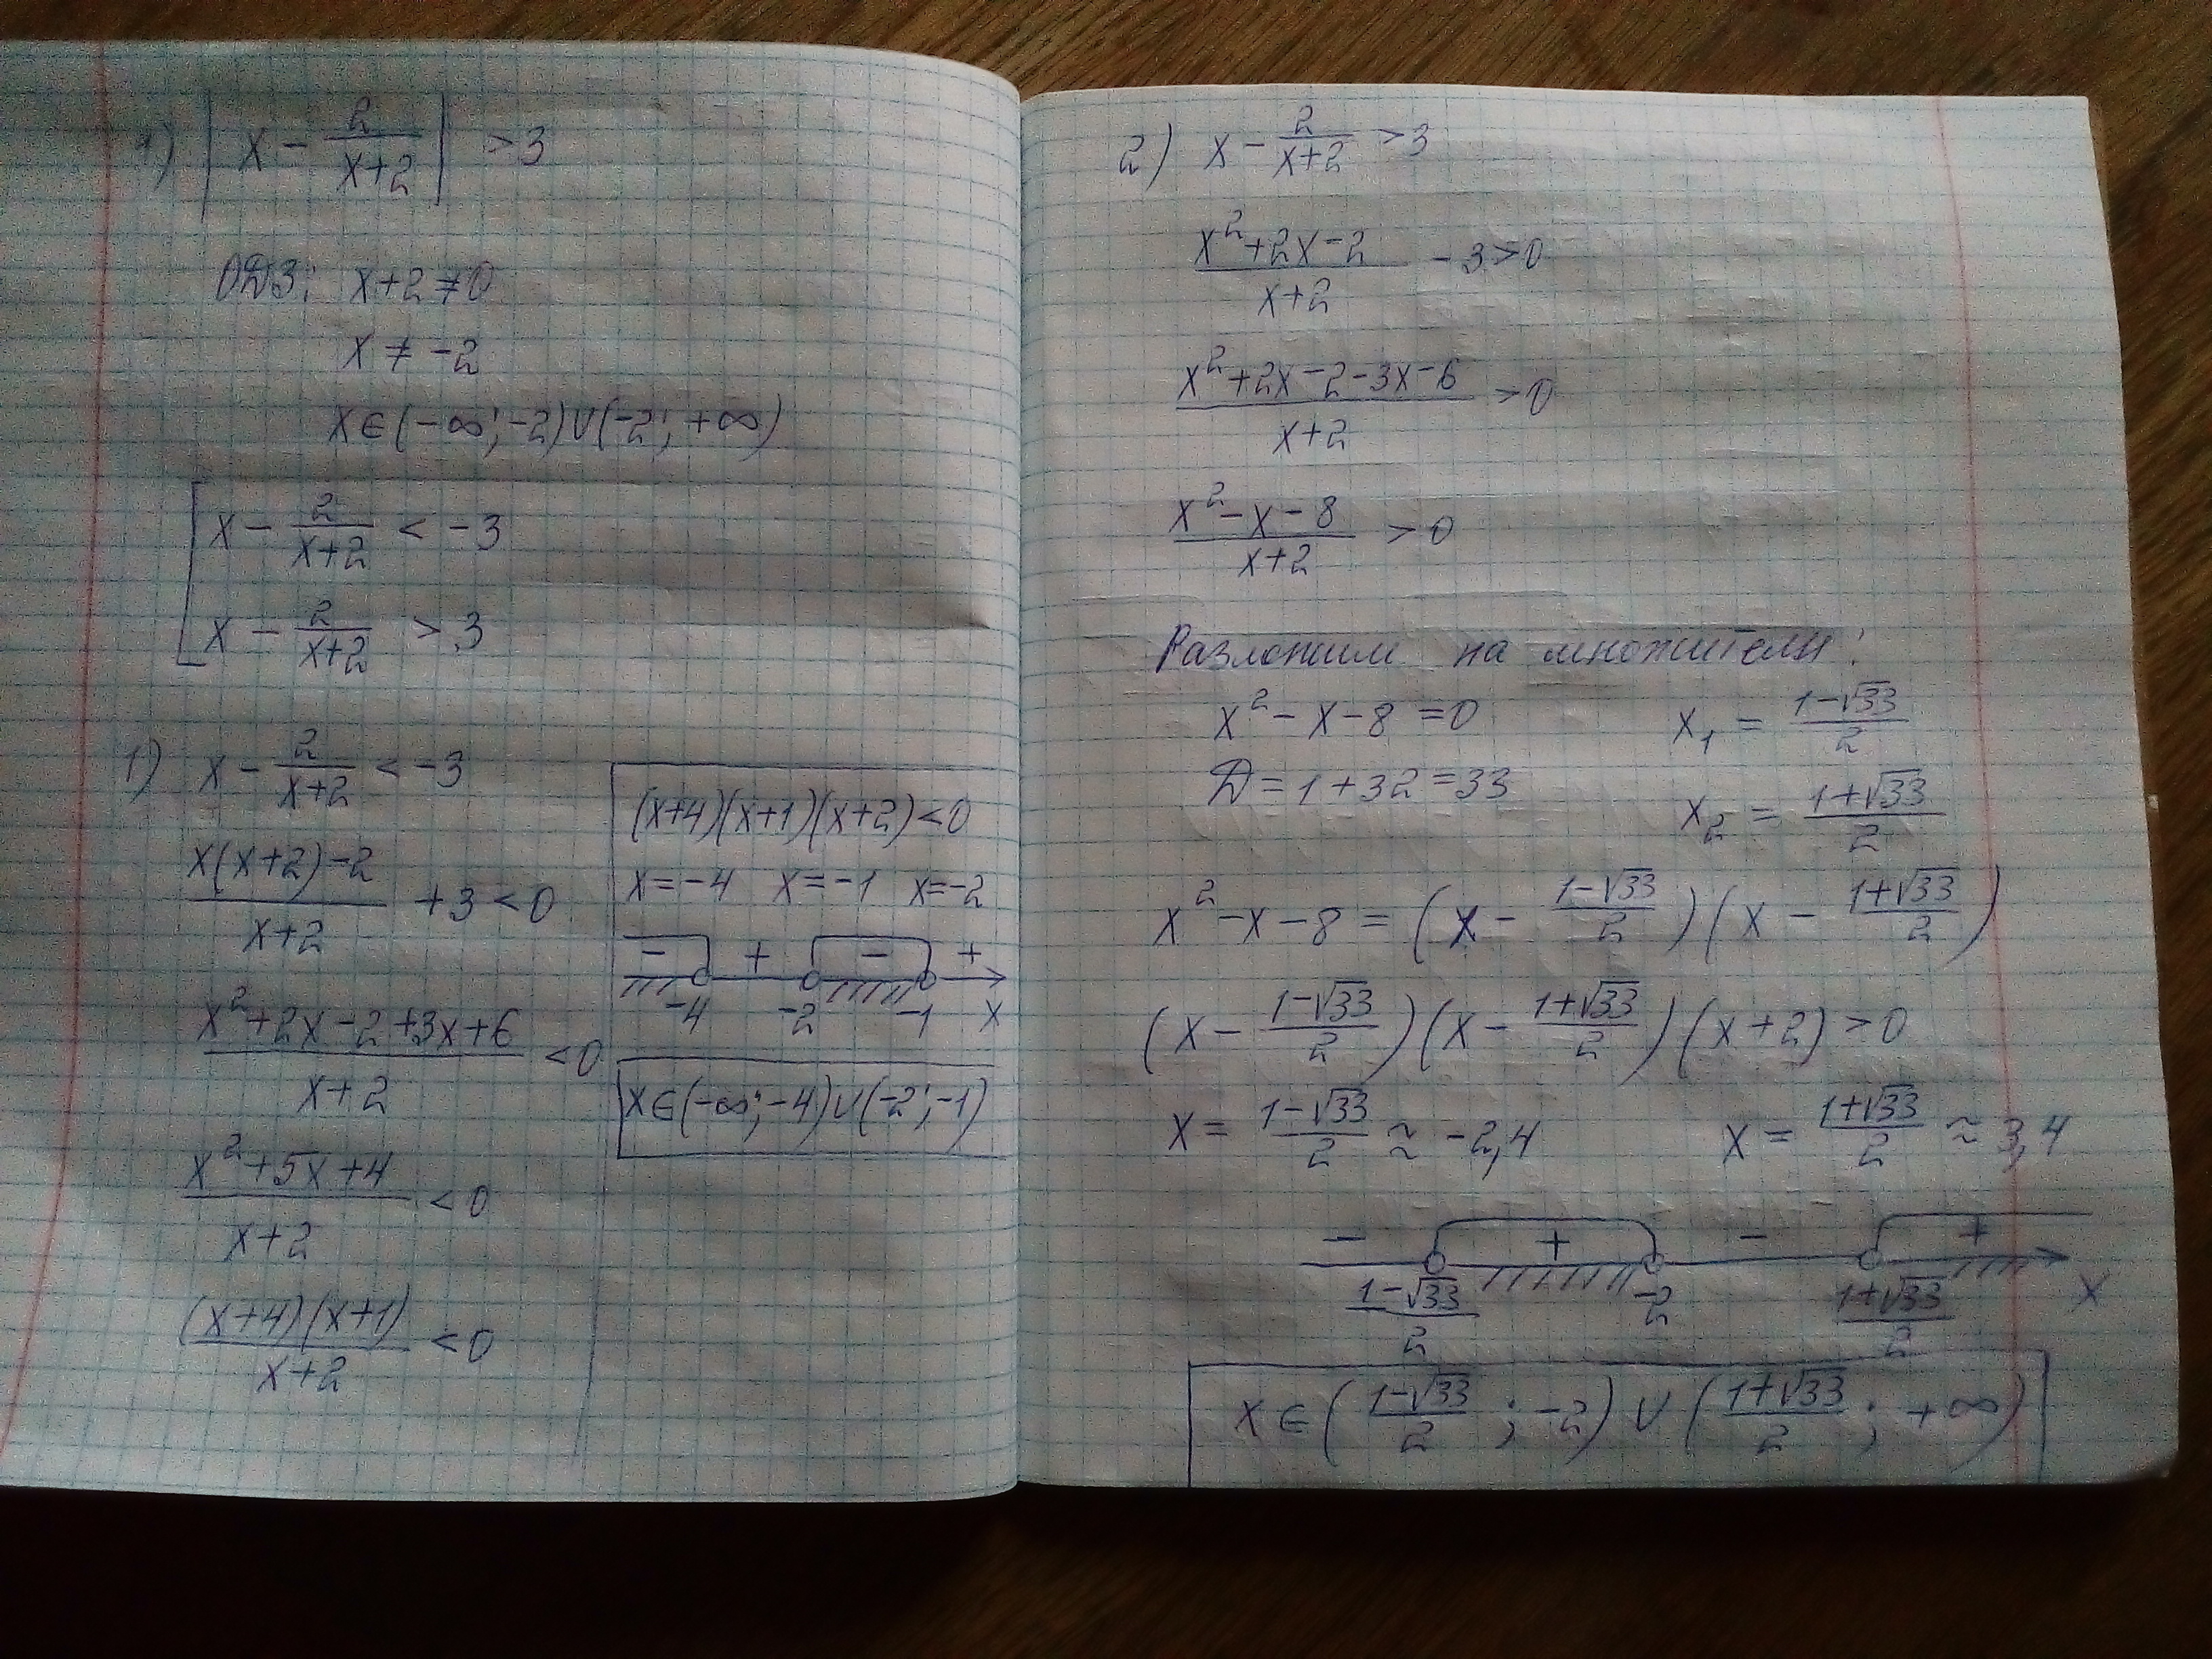 1) |x - 2/(x+2)| > 3
ОДЗ: x+2 ≠ 0
x ≠ -2
x ∈ (-∞; -2) ∪ (-2; +∞)
[ x - 2/(x+2) < -3
x - 2/(x+2) > 3
1) x - 2/(x+2) < -3
(x(x+2)-2)/(x+2) + 3 < 0
(x²+2x-2+3x+6)/(x+2) < 0
(x²+5x+4)/(x+2) < 0
((x+4)(x+1))/(x+2) < 0
(x+4)(x+1)(x+2) < 0
x=-4 x=-1 x=-2
- + - +
-4 -2 -1 x
x ∈ (-∞; -4) ∪ (-2; -1)
2) x - 2/(x+2) > 3
(x²+2x-2)/(x+2) - 3 > 0
(x²+2x-2-3x-6)/(x+2) > 0
(x²-x-8)/(x+2) > 0
Разложим на множители:
x²-x-8 = 0 x₁ = (1-√33)/2
D = 1+32 = 33 x₂ = (1+√33)/2
x²-x-8 = (x - (1-√33)/2)(x - (1+√33)/2)
(x - (1-√33)/2)(x - (1+√33)/2)(x+2) > 0
x = (1-√33)/2 ≈ -2,4 x = (1+√33)/2 ≈ 3,4
- + - +
(1-√33)/2 -2 (1+√33)/2 x
x ∈ ((1-√33)/2; -2) ∪ ((1+√33)/2; +∞)